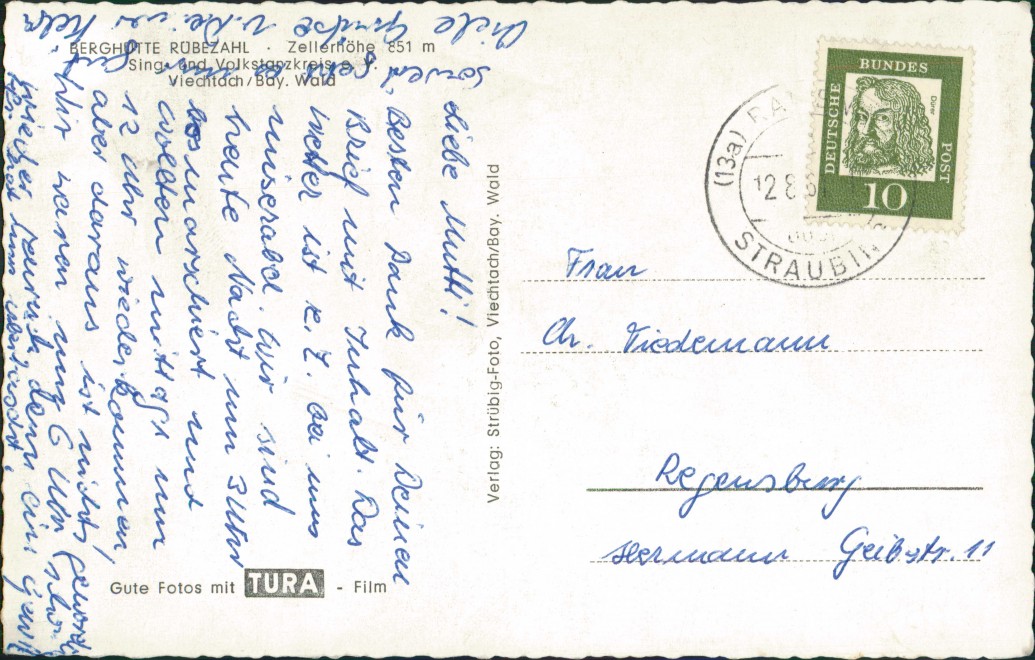 BERGHÜTTE RÜBEZAHL · Zellerhöhe 851 m
Sing- und Volkstanzkreis e. V.
Viechtach/Bay. Wald
Liebe Mutti!
Besten Dank für Deinen
Brief mit Inhalt. Das
Wetter ist z. Z. bei uns
miserabel. Wir sind
heute Nacht um 3 Uhr
losmarschiert und
wollten mittags um
12 Uhr wieder kommen,
aber daraus ist nichts geword.
Wir waren um 6 Uhr schon
wieder zurück, denn ein Gewit
Viele Grüße
Verlag: Strübig-Foto, Viechtach/Bay. Wald
Gute Fotos mit TURA - Film
DEUTSCHE
BUNDES
POST
Dürer
10
(13a)
12 8
STRAUBING
Frau
Chr. Tiedemann
Regensburg
Hermann Geibstr. 11